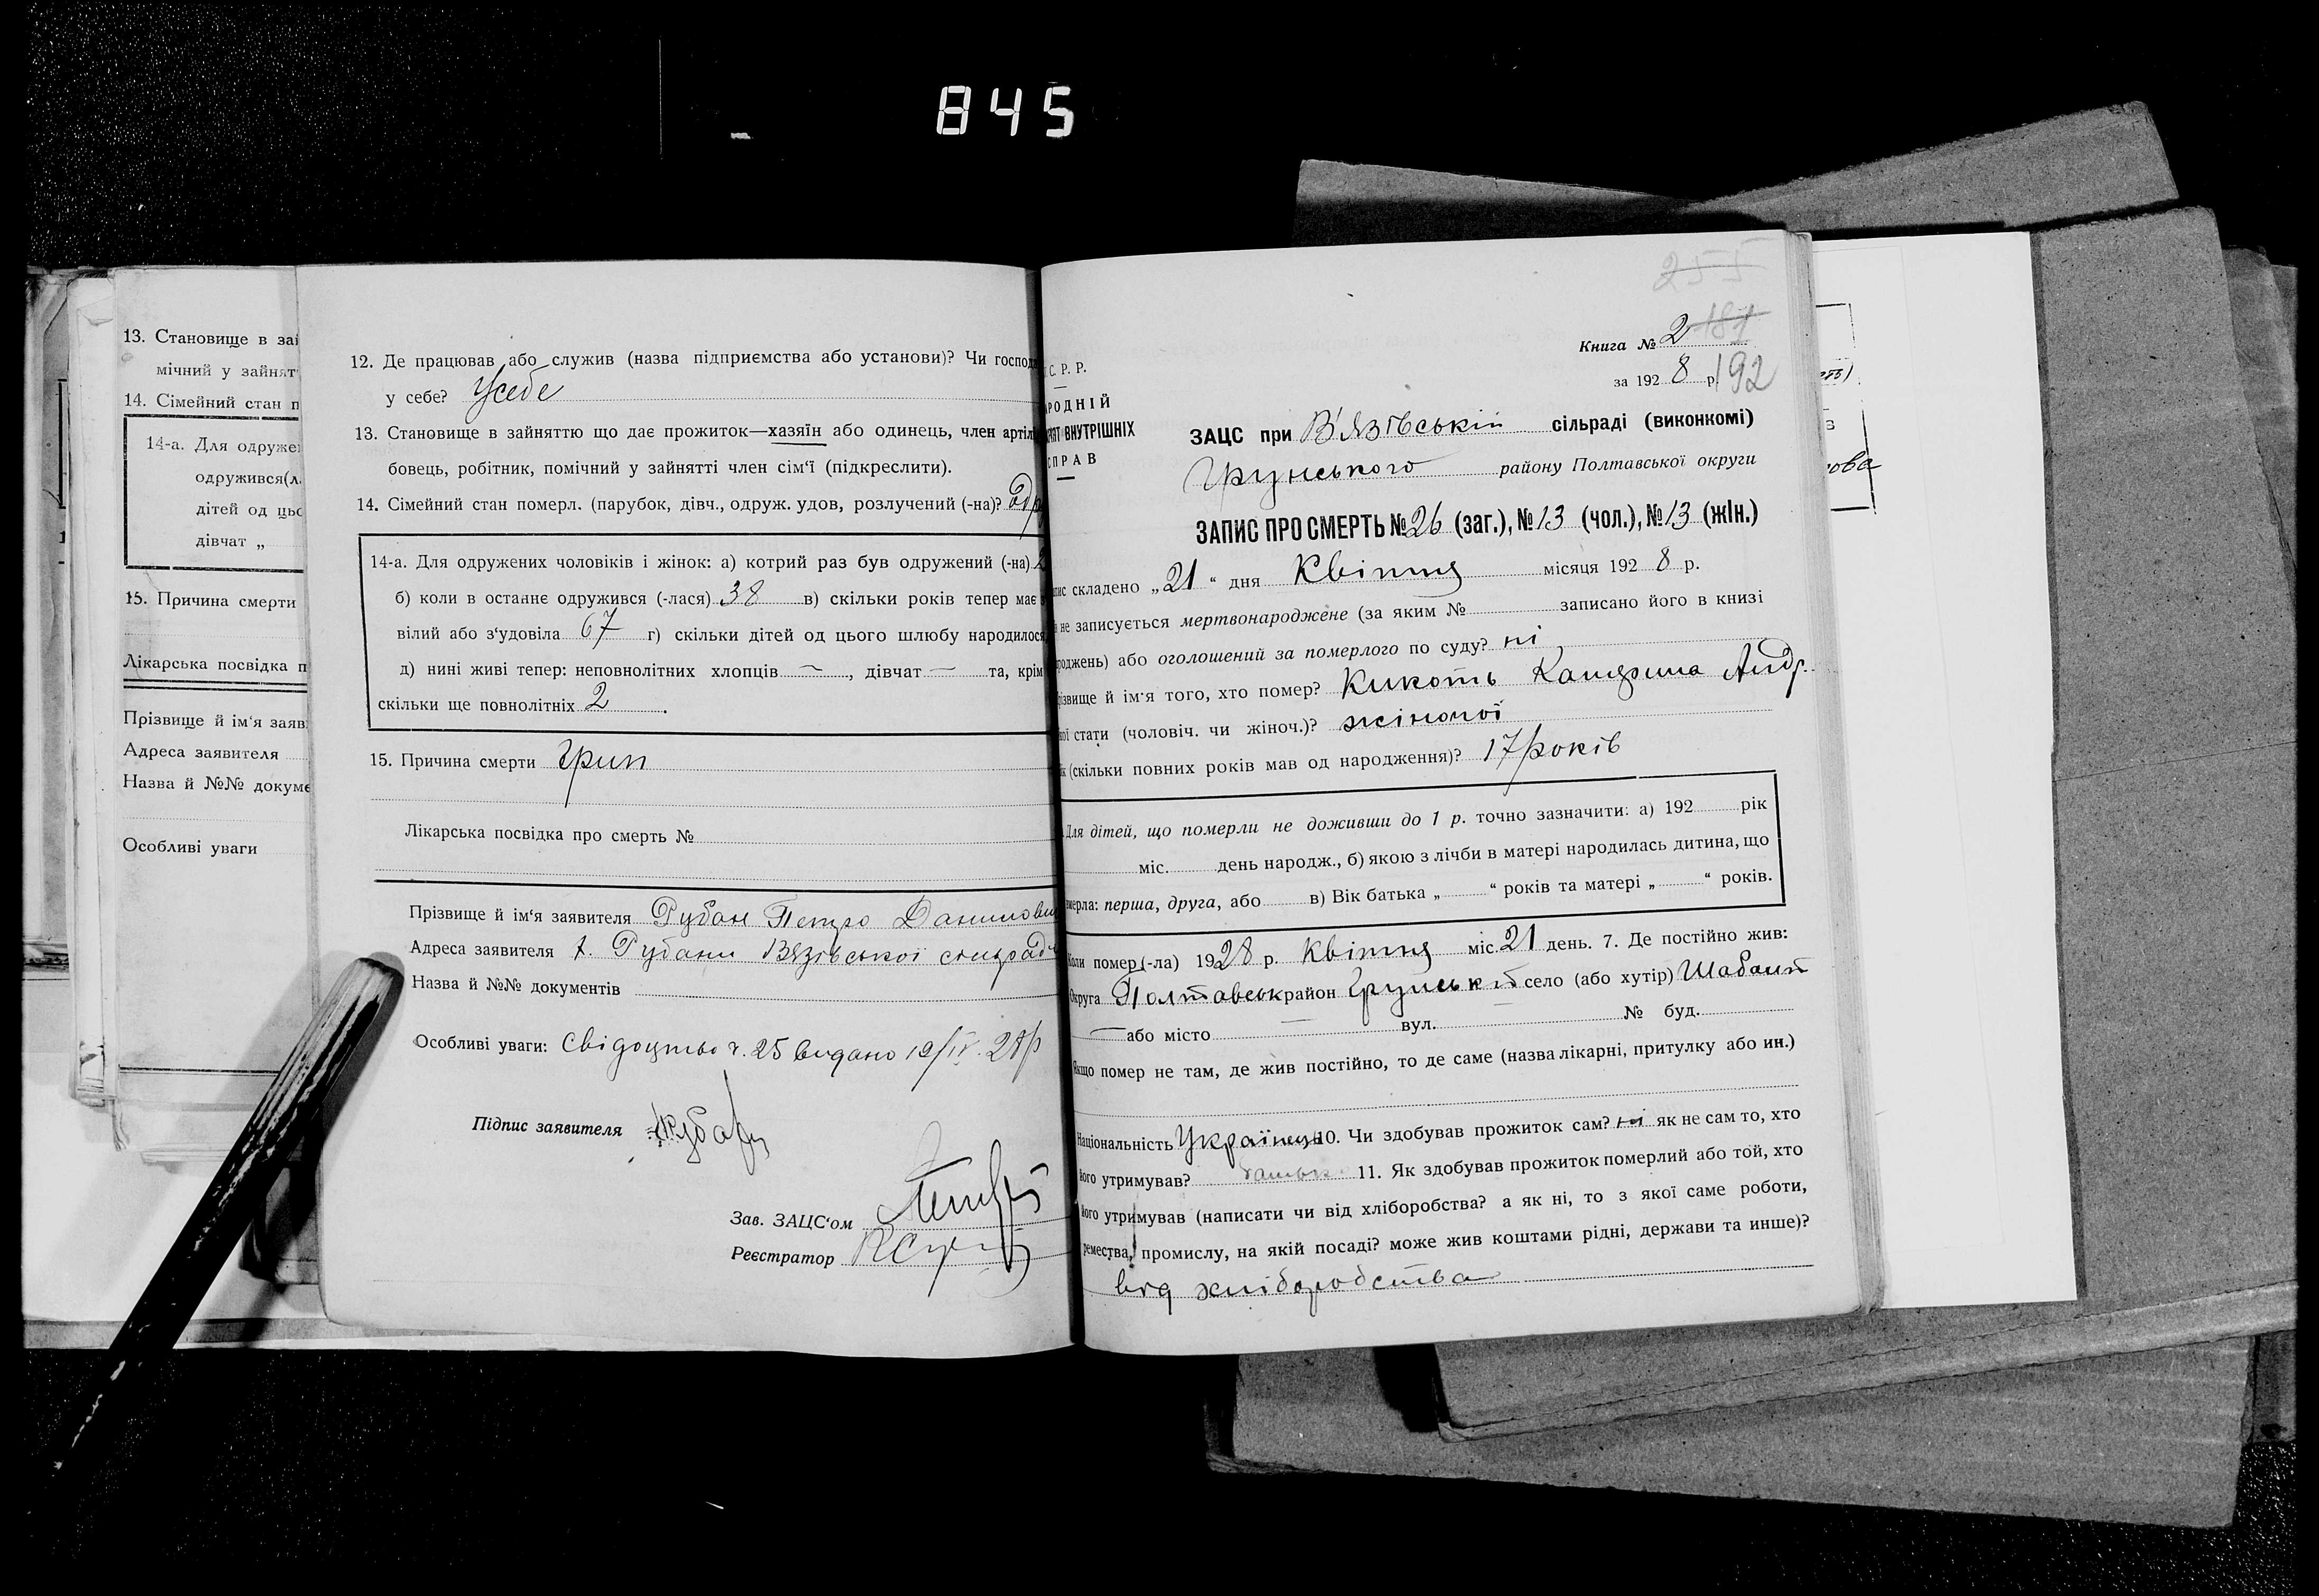 845
13. Становище в зай
мічний у зайнят
14. Сімейний стан п
14-а. Для одружен
одружився(л
дітей од цьо
дівчат „
15. Причина смерти
Лікарська посвідка п
Прізвище й ім'я заяв
Адреса заявителя
Назва й №№ докуме
Особливі уваги
12. Де працював або служив (назва підприємства або установи)? Чи господ
у себе? Усебе
13. Становище в зайняттю що дає прожиток—хазяїн або одинець, член артіл
бовець, робітник, помічний у зайнятті член сім'ї (підкреслити).
14. Сімейний стан померл. (парубок, дівч., одруж. удов, розлучений (-на)? Одр
14-а. Для одружених чоловіків і жінок: а) котрий раз був одружений (-на) 2
б) коли в останнє одружився (-лася) 38 в) скільки років тепер має
вілий або з'удовіла 67 г) скільки дітей од цього шлюбу народилося
д) нині живі тепер: неповнолітних хлопців —, дівчат — та, крім
скільки ще повнолітніх 2.
15. Причина смерти Грип
Лікарська посвідка про смерть №
Прізвище й ім'я заявителя Рубан Петро Данилович
Адреса заявителя х. Рубани Вязівської сільради
Назва й №№ документів
Особливі уваги: Свідоцтво ч. 25 видано 19/IV. 28р
Підпис заявителя
Зав. ЗАЦС'ом
Реєстратор
255
181
Книга № 2
за 192 8 р.
192
С. Р. Р.
РОДНІЙ
РІЯТ ВНУТРІШНІХ
СПРАВ
ЗАЦС при В'язівській сільраді (виконкомі)
Грунського району Полтавської округи
ЗАПИС ПРО СМЕРТЬ № 26 (заг.), № 13 (чол.), № 13 (жін.)
пис складено „21“ дня Квітня місяця 192 8 р.
не записується мертвонароджене (за яким № записано його в книзі
роджень) або оголошений за померлого по суду? ні
різвище й ім'я того, хто помер? Кикоть Катерина Андр.
ої стати (чоловіч. чи жіноч.)? жіночої
к (скільки повних років мав од народження)? 17 років
Для дітей, що померли не доживши до 1 р. точно зазначити: а) 192 рік
міс. день народж., б) якою з лічби в матері народилась дитина, що
мерла: перша, друга, або в) Вік батька „ “ років та матері „ “ років.
Коли помер (-ла) 1928 р. Квітня міс. 21 день. 7. Де постійно жив:
Округа Полтавськ район Грунський село (або хутір)
— або місто — вул. — № буд.
Якщо помер не там, де жив постійно, то де саме (назва лікарні, притулку або ин.)
Національність Українець 10. Чи здобував прожиток сам? ні як не сам то, хто
його утримував? батько 11. Як здобував прожиток померлий або той, хто
його утримував (написати чи від хліборобства? а як ні, то з якої саме роботи,
ремества, промислу, на якій посаді? може жив коштами рідні, держави та инше)?
від хліборобства